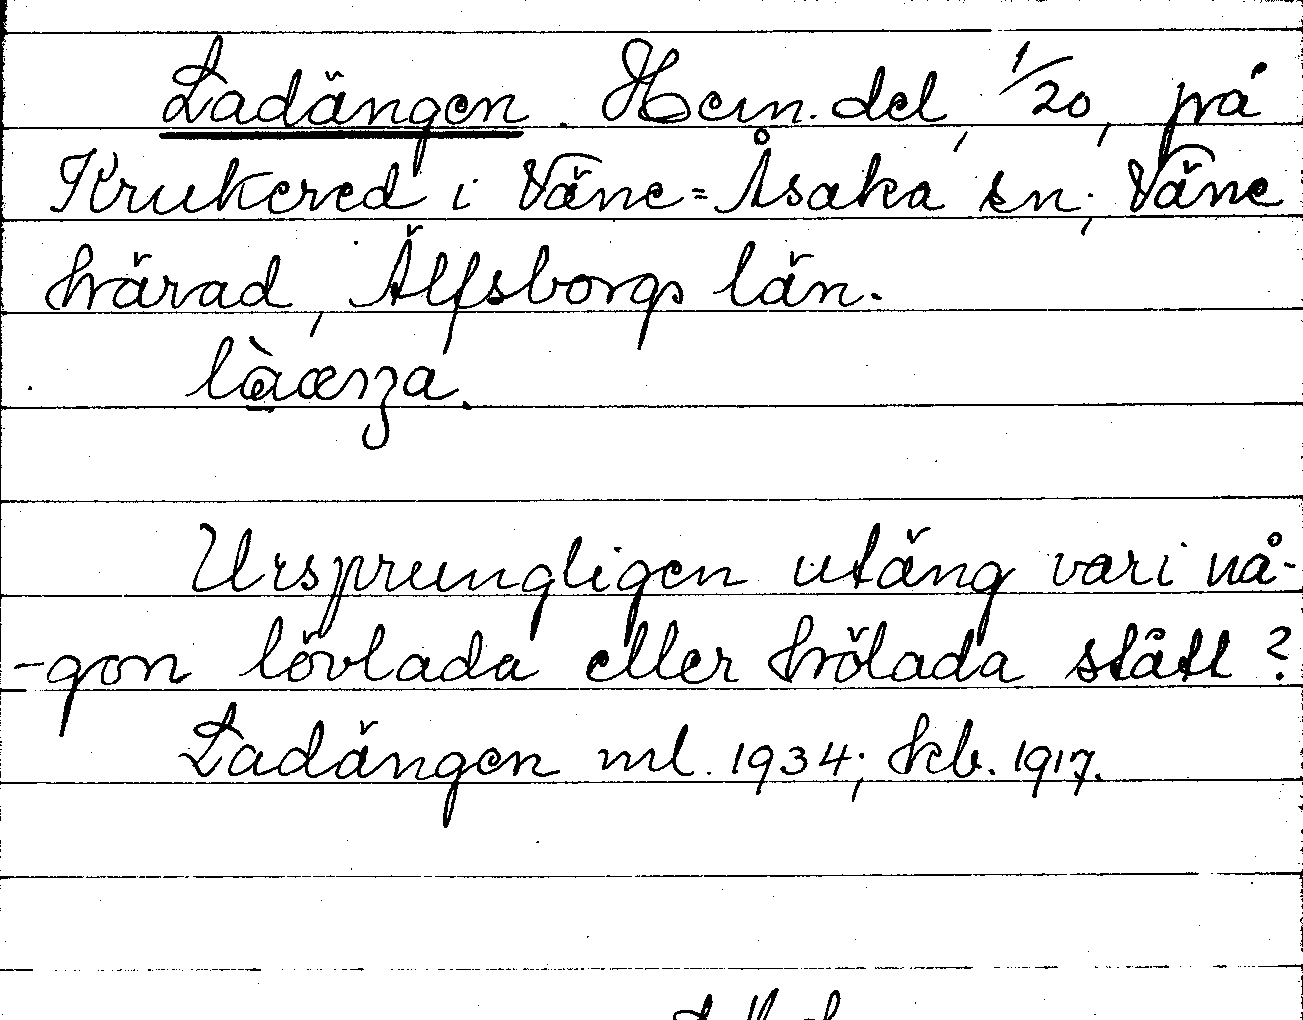 Ladängen. Hem. del, 1/20, på
Krukered i Väne=Åsaka sn; Väne
härad, Älfsborgs län.
Ursprungligen utäng vari nå-
-gon lövlada eller hölada stått?
Ladängen ml. 1934; Jeb. 1917.